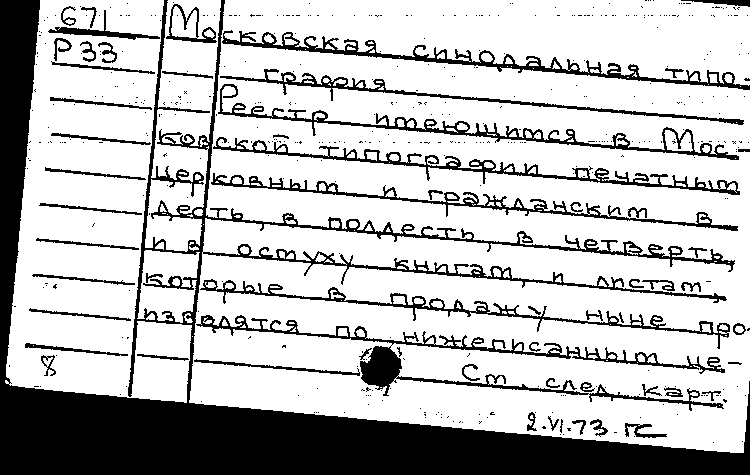 671
Р33
Московская синодальная типо-
графия.
Реестр имеющимся в Мос-
ковской типографии печатным
церковным и гражданским в
десть, в полдесть, в четверть,
и в остуху книгам, и листам,
которые в продажу ныне про-
изводятся по нижеписанным це-
См. след. карт.
8
2.VI.73. ГС